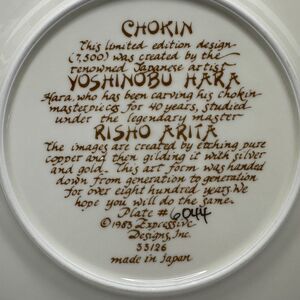 CHOKIN
This limited edition design
(7,500) was created by the
renowned Japanese artist
YOSHINOBU HARA
Hara, who has been carving his chokin
masterpieces for 40 years, studied
under the legendary master
RISHO ARITA
The images are created by etching pure
copper and then gilding it with silver
and gold. This art form was handed
down from generation to generation
for over eight hundred years. We
hope you will do the same.
Plate # 6044
©1983 Expressive
Designs, Inc.
33126
made in Japan